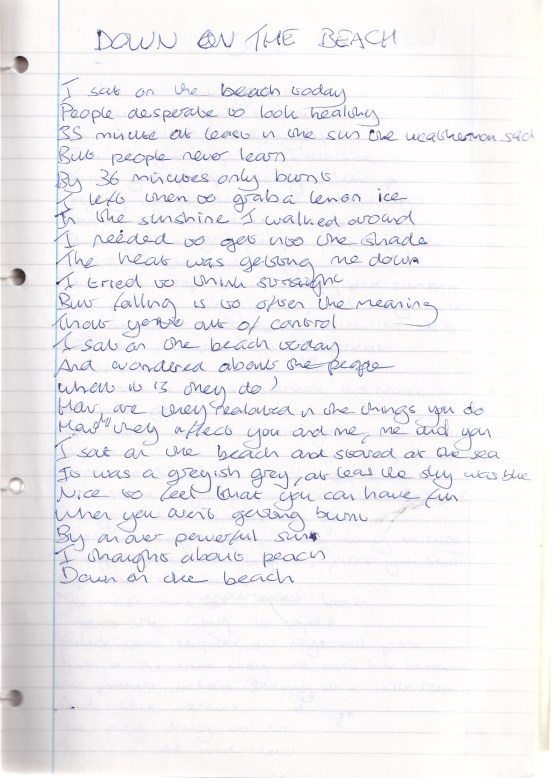 DOWN ON THE BEACH
I sat on the beach today
People desperate to look healthy
35 minute at least in the sun the weatherman said
But people never learn
By 36 minutes only burnt
I left then to grab a lemon ice
In the sunshine I walked around
I needed to get into the shade
The heat was getting me down
I tried to think straight
But falling is to often the meaning
That you're out of control
I sat on the beach today
And wondered about the people
What it is they do?
How are they realated in the things you do
How they affect you and me, me and you
I sat on the beach and stared at the sea
It was a greyish grey, at leas the sky was blue
Nice to feel that you can have fun
When you ain't getting burnt
By an over powerful sun
I thought about peach
Down on the beach